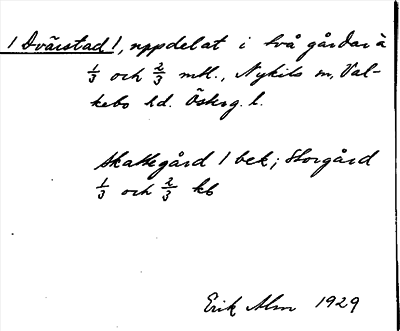 1 Dvärstad 1, uppdelat i två gårdar à
1/3 och 2/3 mtl., Nykils sn, Val-
kebo hd. Österg. l.
Skattegård 1 bek; Storgård
1/3 och 2/3 kb
Erik Alm 1929